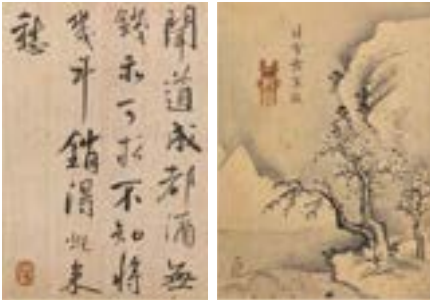 聞道成都酒無
錢亦可求不知將
幾斗銷得此來
愁